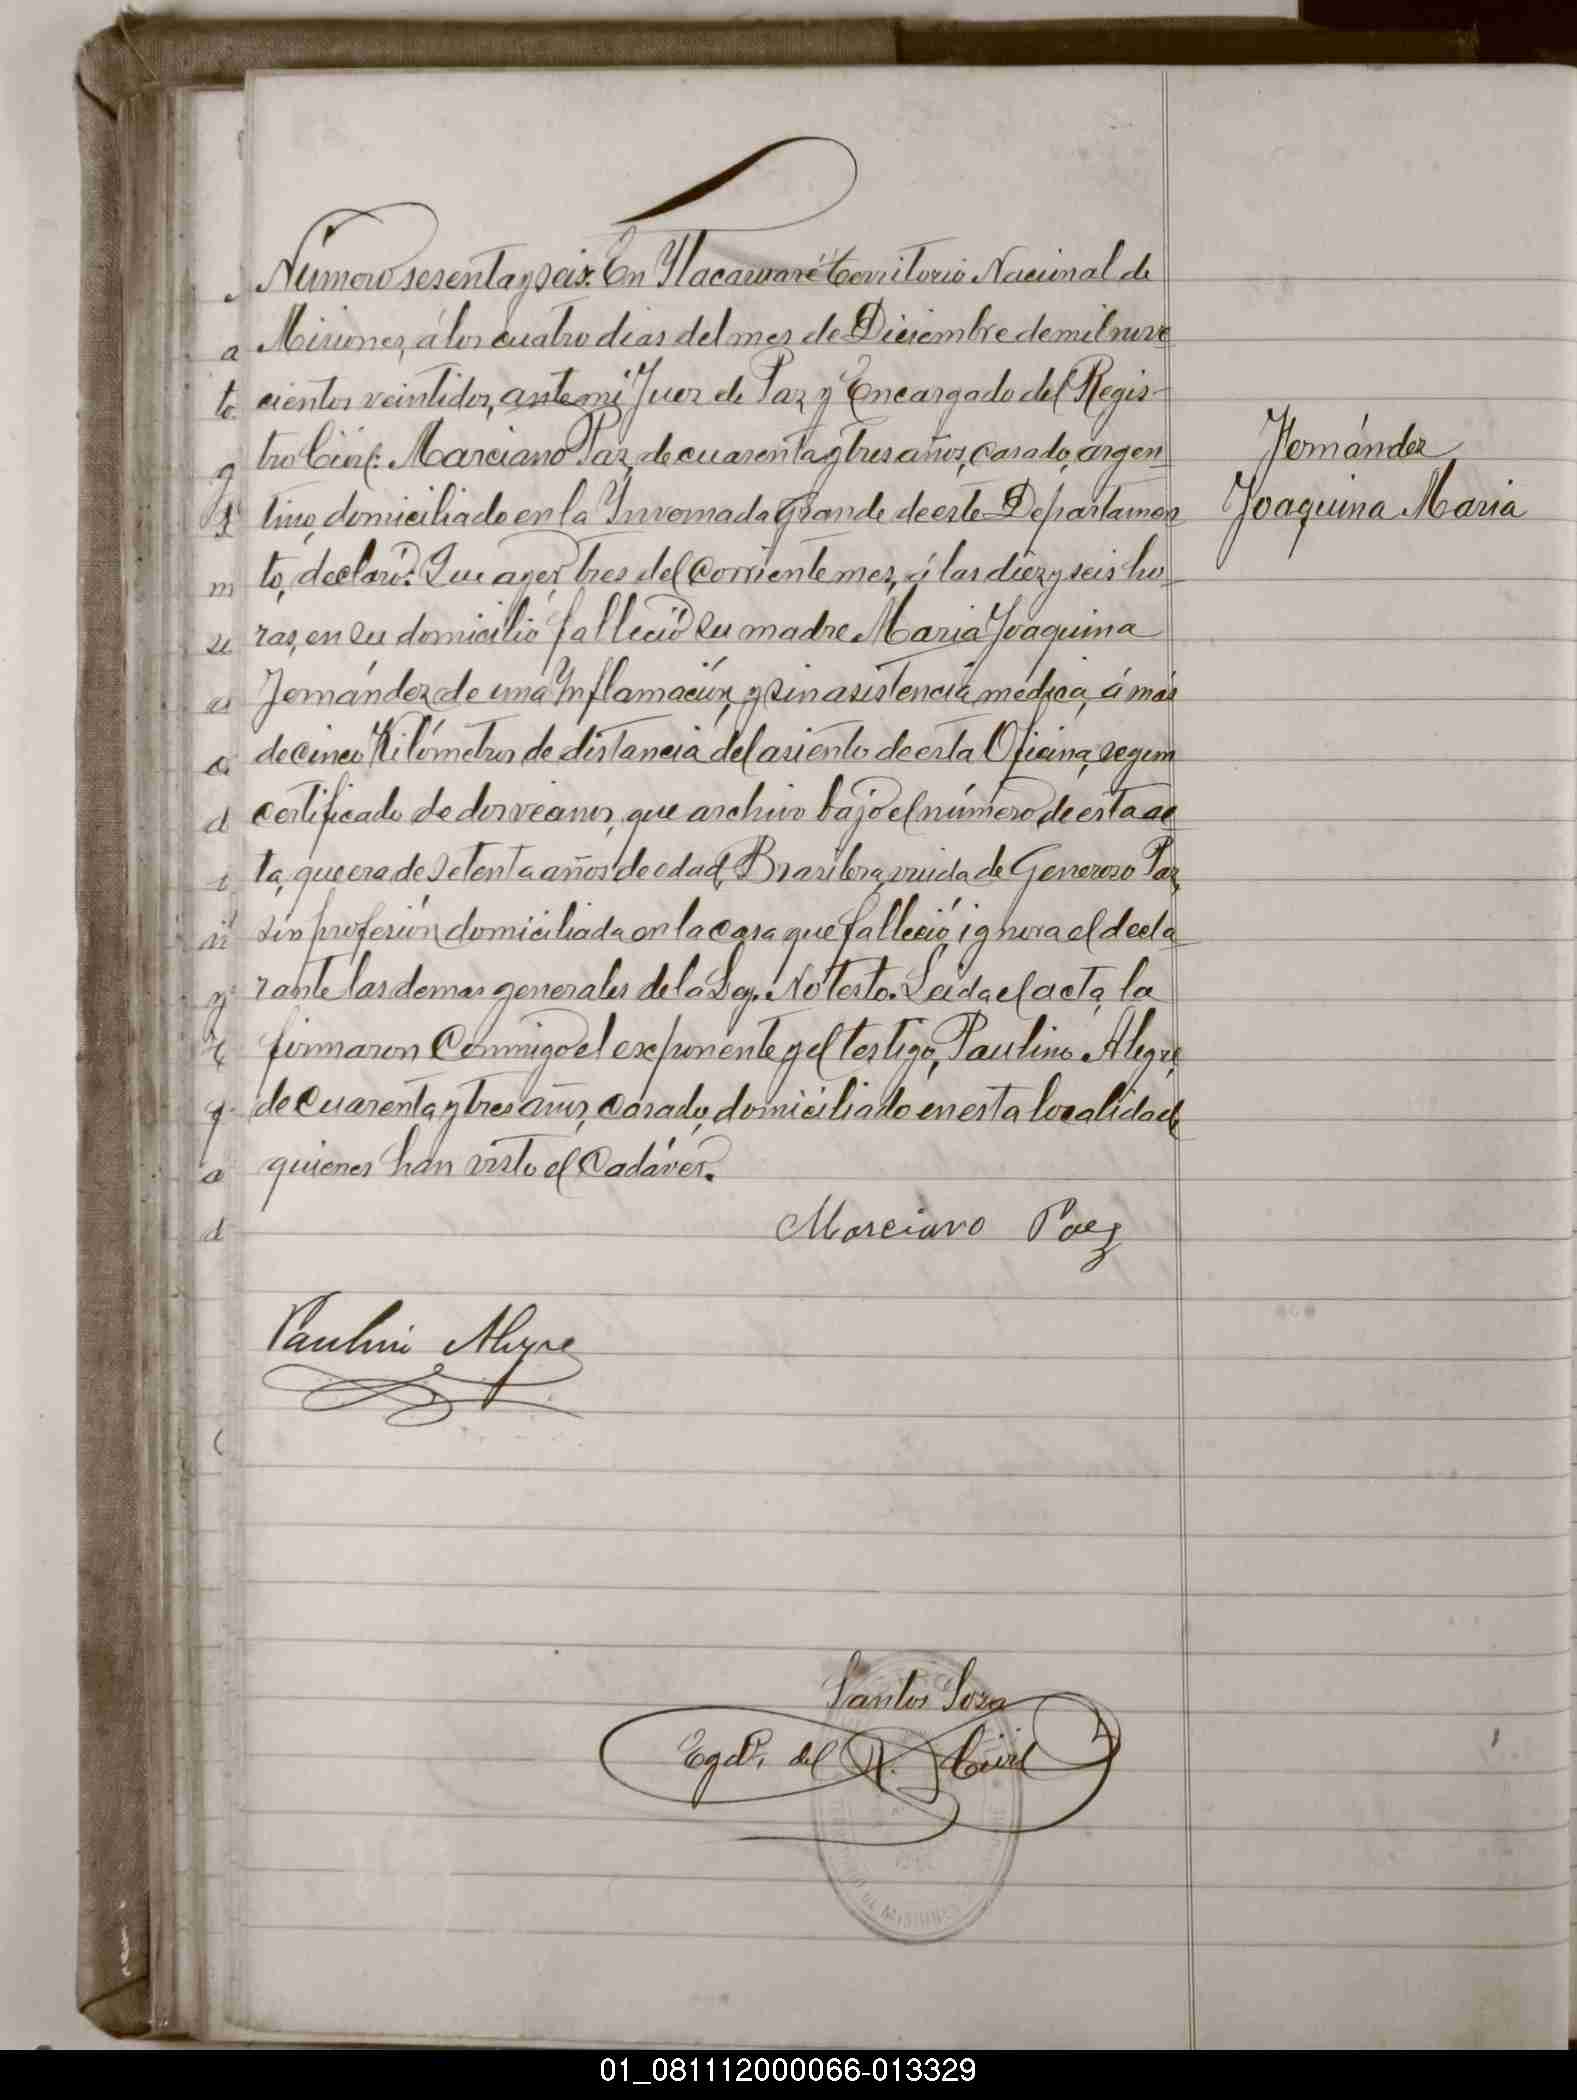 Número sesenta y seis: En Ytacaruaré territorio Nacional de
Misiones, á los cuatro dias del mes de Diciembre de mil nove
cientos veintidos, ante mi Juez de Paz y Encargado del Regis-
tro Civil: Marciano Paz, de cuarenta y tres años, casado, argen-
tino, domiciliado en la Invernada Grande de este Departamen
to, declaró: Que ayer, tres del corriente mes, á las diez y seis ho-
ras, en su domicilio falleció su madre Maria Joaquina
Fernández de una Inflamación, y sin asistencia médica, á más
de cinco Kilómetros de distancia del asiento de esta Oficina, segun
certificado de dos vecinos, que archivo bajo el número de esta ac
ta, que era de setenta años de edad, Brasilera, viuda de Generoso Paz,
sin profesión domiciliada en la casa que falleció, ignora el decla
rante las demas generales de la Ley. No testo. Leida el acta, la
firmaron conmigo el exponente y el testigo, Paulino Alegre,
de cuarenta y tres años, casado, domiciliado en esta localidad,
quienes han visto el Cadáver.
Fernández
Joaquina Maria
Marciano Paez
Paulino Alegre
Santos Soza
Egdo. del R. Civil
DE MISIONES
01_081112000066-013329